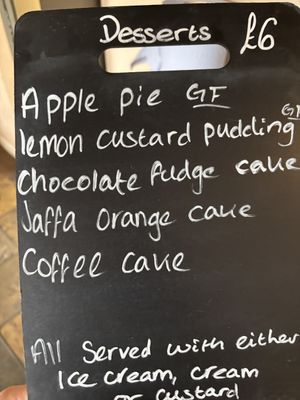 Desserts £6
Apple Pie GF
lemon custard pudding GF
Chocolate fudge cake
Jaffa orange cake
Coffee cake
All Served with either
Ice cream, cream
or custard